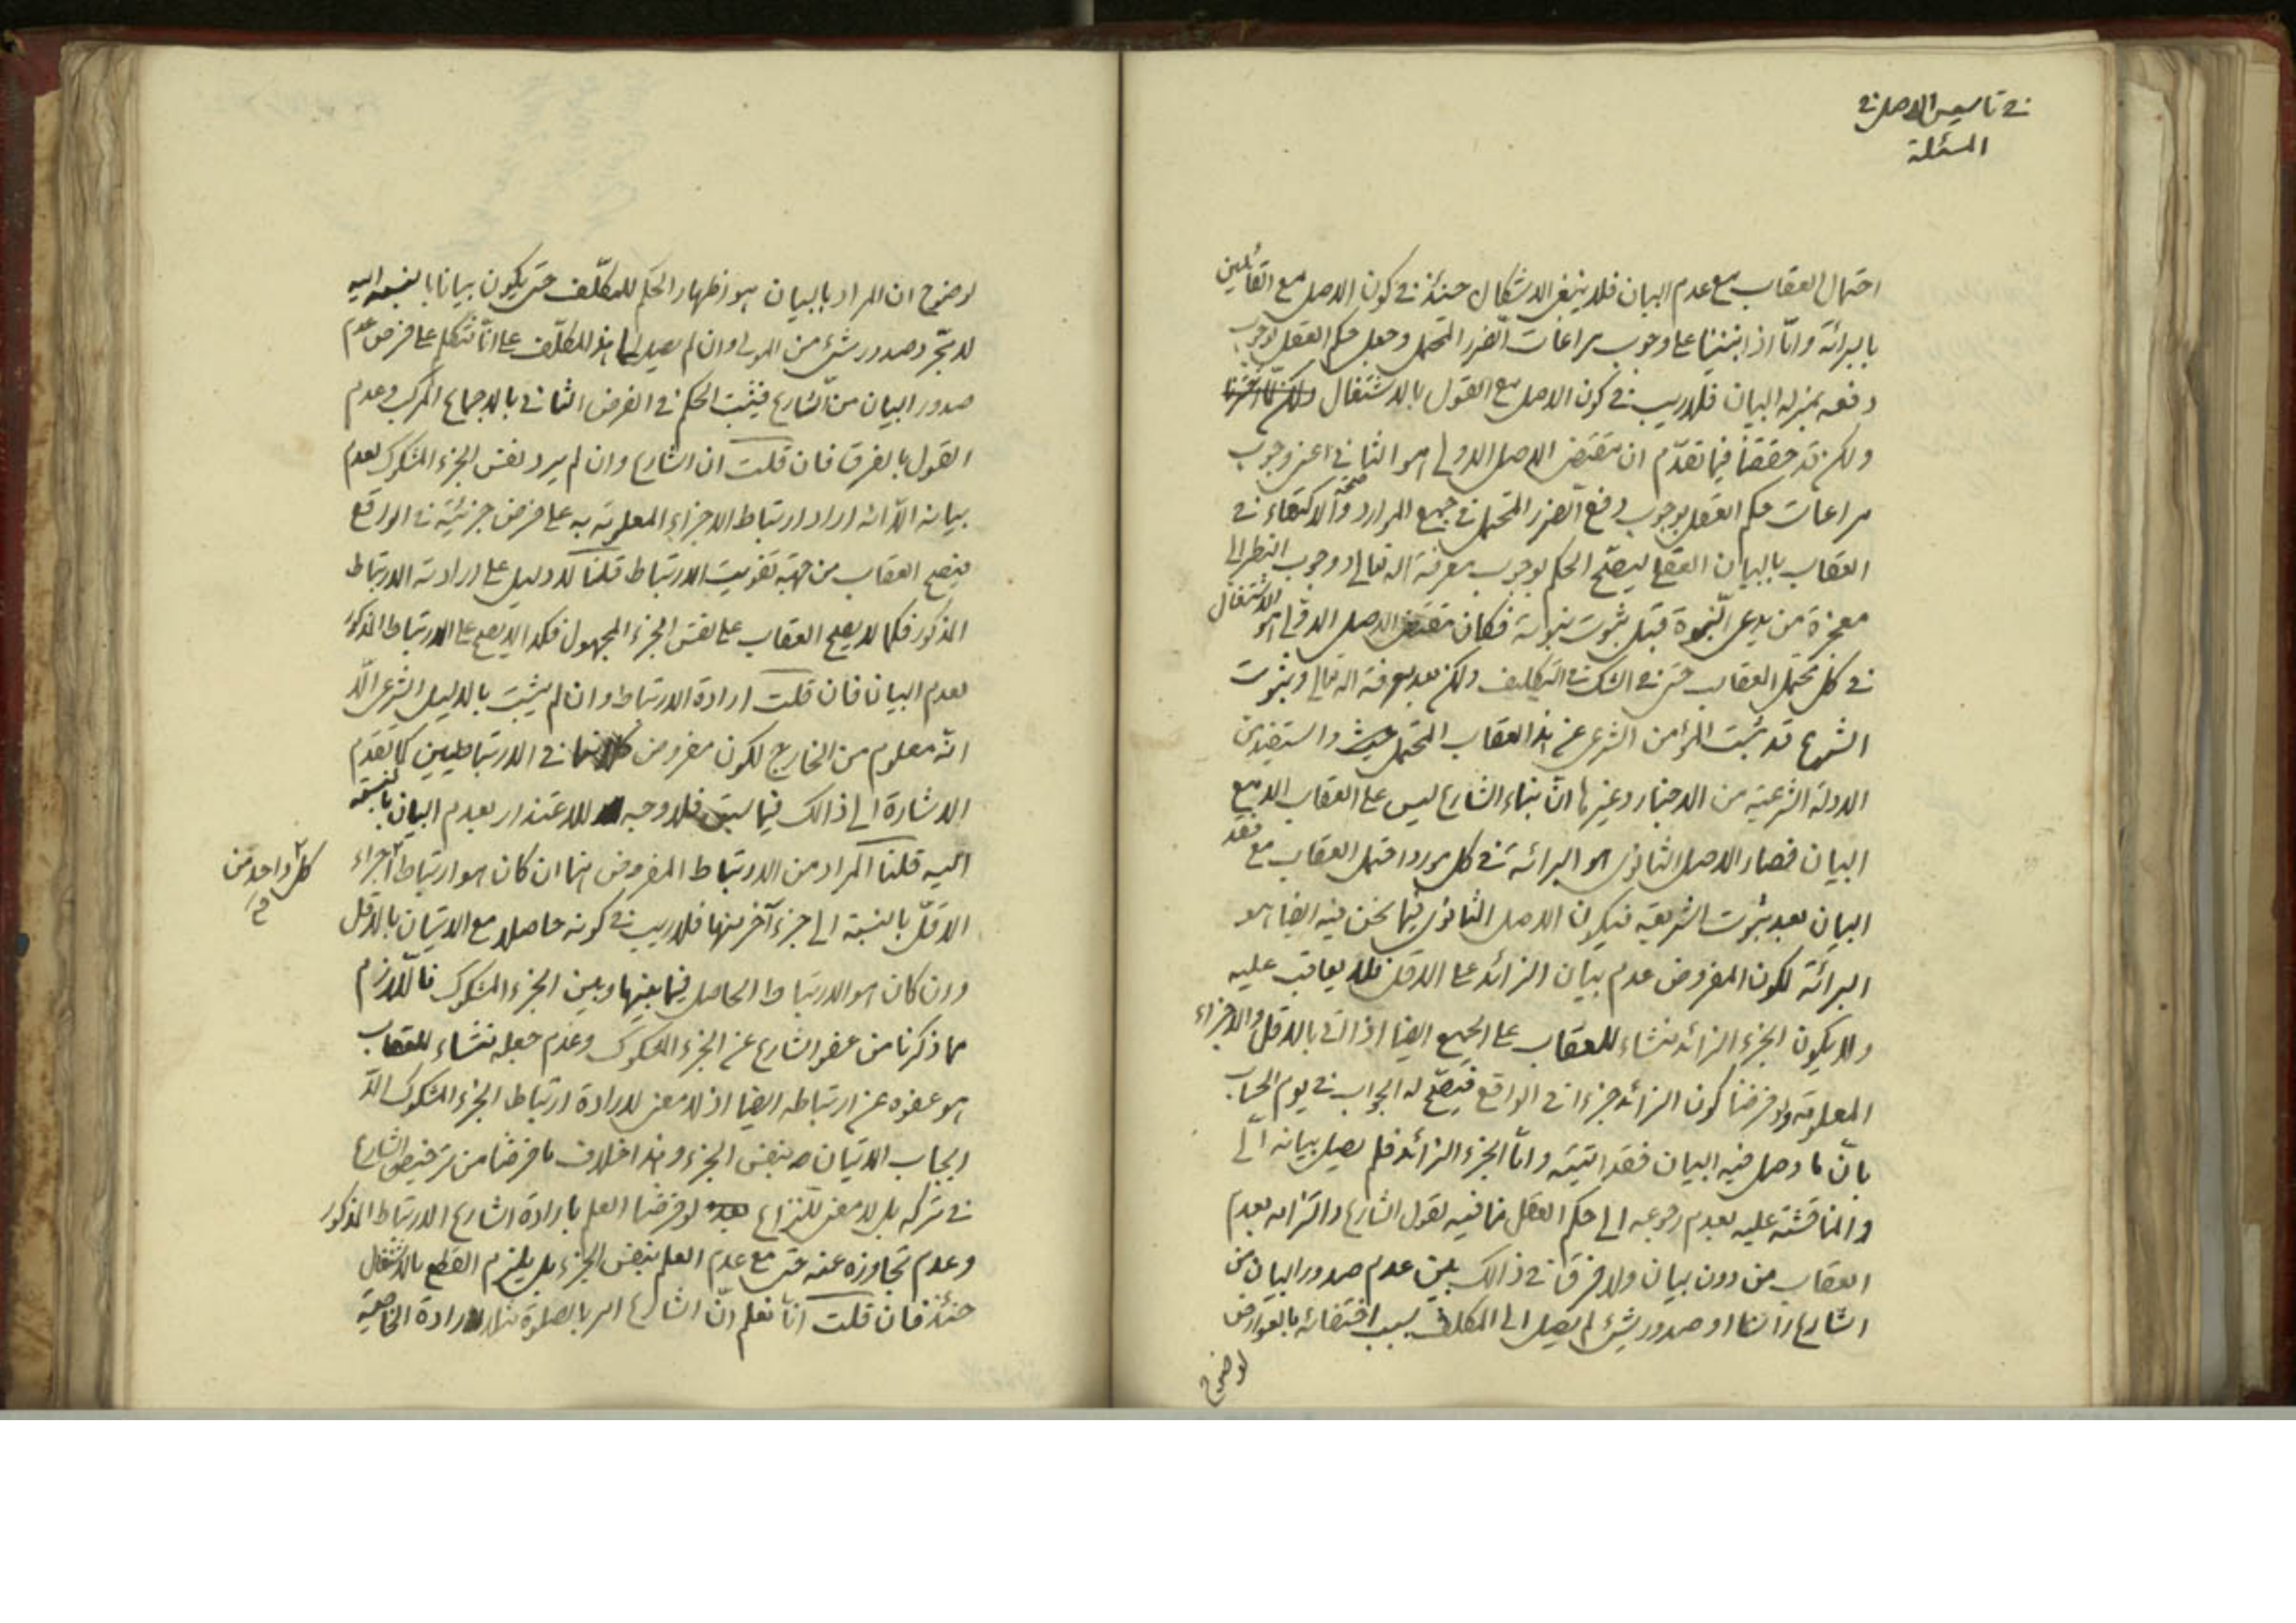 في تاسيس الاصل في
المسئلة
احتمال العقاب مع عدم البيان فلا ينبغي الاشكال حينئذ في كون الاصل مع القائلين
بالبرائة وامّا اذا بنينا على وجوب مراعات الضرر المحتمل وجعل حكم العقل بوجوب
دفعه بمنزلة البيان فلا ريب في كون الاصل مع القول بالاشتغال
ولكن قد حققنا فيما تقدّم ان مقتضى الاصل الاولى هو الثاني اعني وجوب
مراعات حكم العقل بوجوب دفع الضرر المحتمل في جميع الموارد والاكتفاء في
العقاب بالبيان العقلي ليصحّ الحكم بوجوب معرفة الله تعالى ووجوب النظر الى
معجزة من يدعى النّبوة قبل ثبوت نبوته فكان مقتضى الاصل الاولى هو الاشتغال
في كل محتمل العقاب حتى في الشك في التكليف ولكن بعد معرفة الله تعالى وثبوت
الشرع قد ثبت المؤامن الشرعى عن هذا العقاب المحتمل حيث واستفيد من
الادلة الشرعية من الاخبار وغيرها انّ بناء الشارع ليس على العقاب الا مع
البيان فصار الاصل الثانوى هو البرائة في كل مورد احتمل العقاب مع فقد
البيان بعد ثبوت الشريعة فيكون الاصل الثانوى فيما نحن فيه ايضا هو
البرائة لكون المفروض عدم بيان الزائد على الاقل فلا يعاقب عليه
ولا يكون الجزء الزائد منشاء للعقاب على الجميع ايضا اذا اتى بالاقل والاجزاء
المعلومة ولو فرضنا كون الزائد جزءا في الواقع فيصحّ له الجواب في يوم الحساب
بانّ ما وصل فيه البيان فقد اتيته وامّا الجزء الزائد فلم يصل بيانه الىّ
والمناقشة عليه بعدم رجوعه الى حكم العقل منافيه لقول الشارع والتزامه بعدم
العقاب من دون بيان ولا فرق في ذالك بين عدم صدور البيان من
الشارع راسا او صدور شئ لم يصل الى المكلف بسبب اختفائه بالعوارض
لوضوح
لوضوح ان المراد بالبيان هو اظهار الحكم للمكلّف حتى يكون بيانا بالنسبة اليه
لا مجرّد صدور شئ من المولى وان لم يصل الى هذا المكلّف على انّا نتكلم على فرض عدم
صدور البيان من الشارع فيثبت الحكم في الفرض الثاني بالاجماع المركب وعدم
القول بالفرق فان قلت ان الشارع وان لم يرد نفس الجزء المشكوك لعدم
بيانه الّا انه اراد ارتباط الاجزاء المعلومة به على فرض جزئيّته في الواقع
فيصح العقاب من جهة تفويت الارتباط قلنا لا دليل على ارادته الارتباط
المذكور فكما لا يصح العقاب على نفس الجزء المجهول فكذا لا يصح على الارتباط المذكور
لعدم البيان فان قلت ارادة الارتباط وان لم يثبت بالدليل الشرعى الّا
انّه معلوم من الخارج لكون مفروض كلامنا في الارتباطيين كما تقدّم
الاشارة الى ذالك فيما سبق فلا وجه للاعتذار بعدم البيان بالنسبة
اليه قلنا المراد من الارتباط المفروض هنا ان كان هو ارتباط اجزاء
كل واحد من
الاقلّ بالنسبة الى جزء آخر منها فلا ريب في كونه حاصلا مع الاتيان بالاقل
وان كان هو الارتباط الحاصل فيما بينها وبين الجزء المشكوك فاللّازم
مما ذكرنا من عفو الشارع عن الجزء المشكوك وعدم جعله منشاء للعقاب
هو عفوه عن ارتباطه ايضا اذ لا معنى لارادة ارتباط الجزء المشكوك الّا
ايجاب الاتيان بنفس الجزء وهذا خلاف ما فرضنا من ترخيص الشارع
في تركه بل لا معنى للنّزاع لو فرضنا العلم بارادة الشارع الارتباط المذكور
وعدم تجاوزه عنه حتى مع عدم العلم بنفس الجزء بل يلزم القطع بالاشتغال
حينئذ فان قلت انّا نعلم انّ الشارع امر بالصلوة مثلا لارادة الخاصية